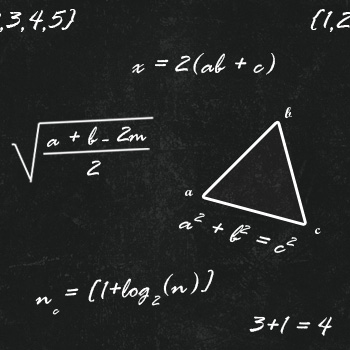 ,3,4,5}
{1,2
x = 2(ab + c)
√((a + b - 2m)/2)
b
a
c
a² + b² = c²
n_c = [1+log₂(n)]
3+1 = 4